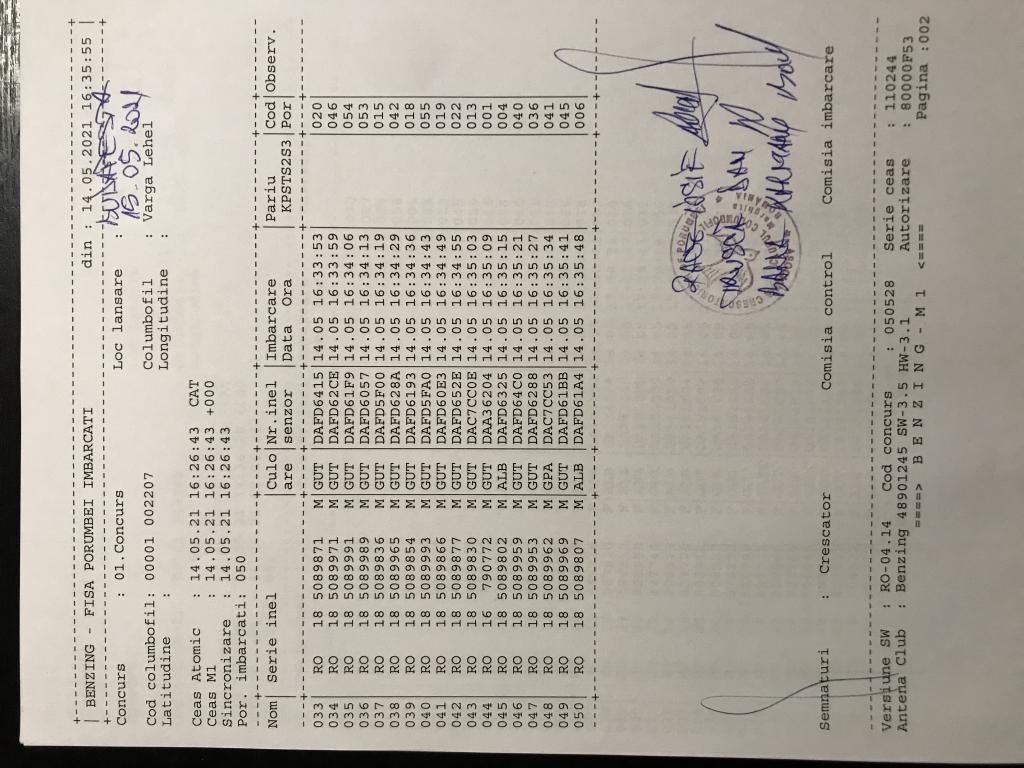 BENZING - FISA PORUMBEI IMBARCATI din : 14.05.2021 16:35:55
Concurs : 01.Concurs Loc lansare :
15.05.2021
Cod columbofil: 00001 002207 Columbofil : Varga Lehel
Latitudine : Longitudine :
Ceas Atomic : 14.05.21 16:26:43 CAT
Ceas M1 : 14.05.21 16:26:43 +000
Sincronizare : 14.05.21 16:26:43
Por. imbarcati: 050
Nom | Serie inel | Culo | Nr.inel | Imbarcare | Pariu | Cod | Observ.
are | senzor | Data Ora | KPSTS2S3 | Por
033 RO 18 5089871 M GUT DAFD6415 14.05 16:33:53 020
034 RO 18 5089971 M GUT DAFD62CE 14.05 16:33:59 046
035 RO 18 5089991 M GUT DAFD61F9 14.05 16:34:06 054
036 RO 18 5089989 M GUT DAFD6057 14.05 16:34:13 053
037 RO 18 5089836 M GUT DAFD5F00 14.05 16:34:19 015
038 RO 18 5089965 M GUT DAFD628A 14.05 16:34:29 042
039 RO 18 5089854 M GUT DAFD6193 14.05 16:34:36 018
040 RO 18 5089993 M GUT DAFD5FA0 14.05 16:34:43 055
041 RO 18 5089866 M GUT DAFD60E3 14.05 16:34:49 019
042 RO 18 5089877 M GUT DAFD652E 14.05 16:34:55 022
043 RO 18 5089830 M GUT DAC7CC0E 14.05 16:35:03 013
044 RO 16 790772 M GUT DAA36204 14.05 16:35:09 001
045 RO 18 5089802 M ALB DAFD6325 14.05 16:35:15 004
046 RO 18 5089959 M GUT DAFD64C0 14.05 16:35:21 040
047 RO 18 5089953 M GUT DAFD6288 14.05 16:35:27 036
048 RO 18 5089962 M GPA DAC7CC53 14.05 16:35:34 041
049 RO 18 5089969 M GUT DAFD61BB 14.05 16:35:41 045
050 RO 18 5089807 M ALB DAFD61A4 14.05 16:35:48 006
Semnaturi : Crescator Comisia control Comisia imbarcare
Versiune SW : RO-04.14 Cod concurs : 050528 Serie ceas : 110244
Antena Club : Benzing 48901245 SW-3.5 HW-3.1 Autorizare : 80000F53
====> B E N Z I N G - M 1 <==== Pagina :002